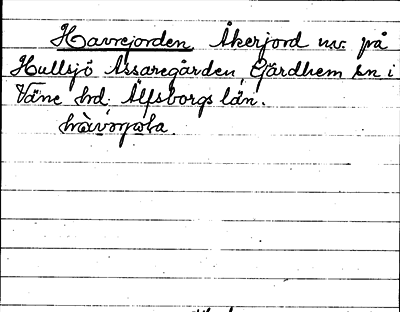 Havrejorden Åkerjord nv. på
Hullsjö Assaregården, Gärdhem sn i
Väne hd, Älfsborgs län.